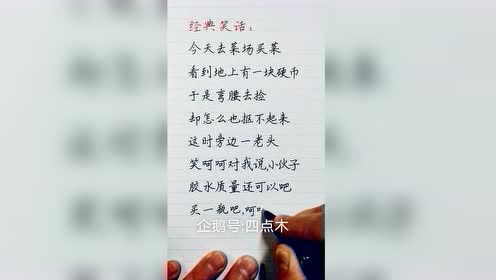 经典笑话：
今天去菜场买菜
看到地上有一块硬币
于是弯腰去捡
却怎么也抠不起来
这时旁边一老头
笑呵呵对我说,小伙子
胶水质量还可以吧
买一瓶吧,呵
企鹅号:四点木